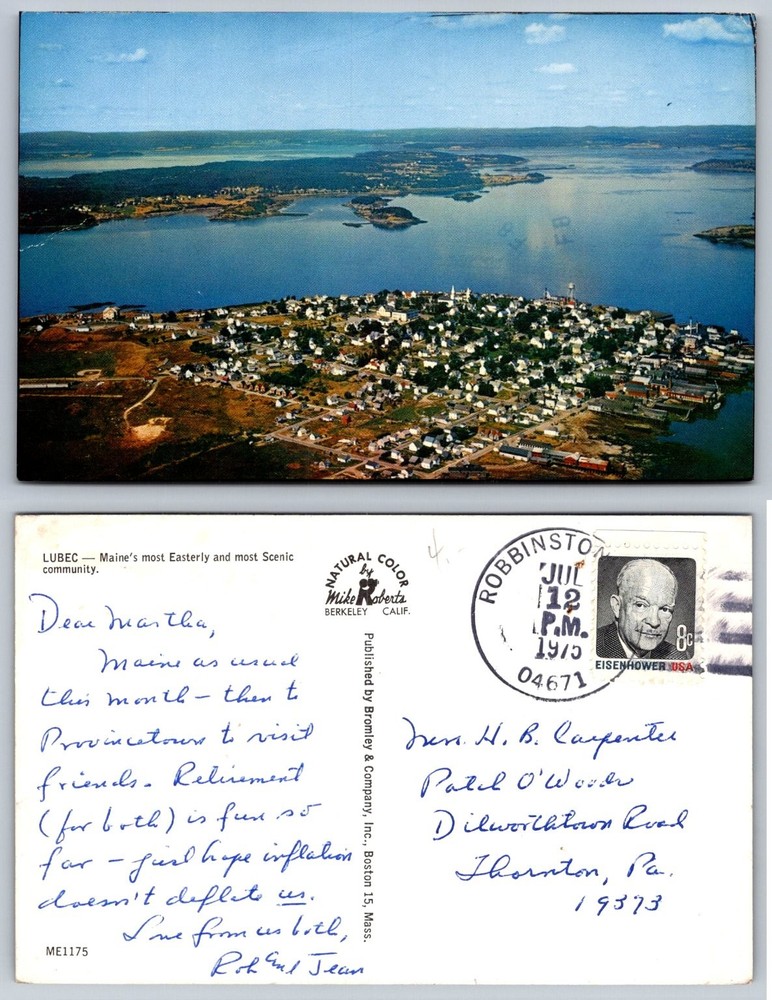 LUBEC — Maine's most Easterly and most Scenic
community.
NATURAL COLOR
by
Mike Roberts
BERKELEY CALIF.
4.-
ROBBINSTON
JUL
12
P.M.
1975
04671
8c
EISENHOWER USA
Dear Martha,
Maine as usual
this month - then to
Provincetown to visit
friends. Retirement
(for both) is fun so
far - just hope inflation
doesn't deflate us.
Love from us both,
Rob and Jean
Published by Bromley & Company, Inc., Boston 15, Mass.
Mrs. H. B. Carpenter
Patch O'Woods
Dilworthtown Road
Thornton, Pa.
19373
ME1175